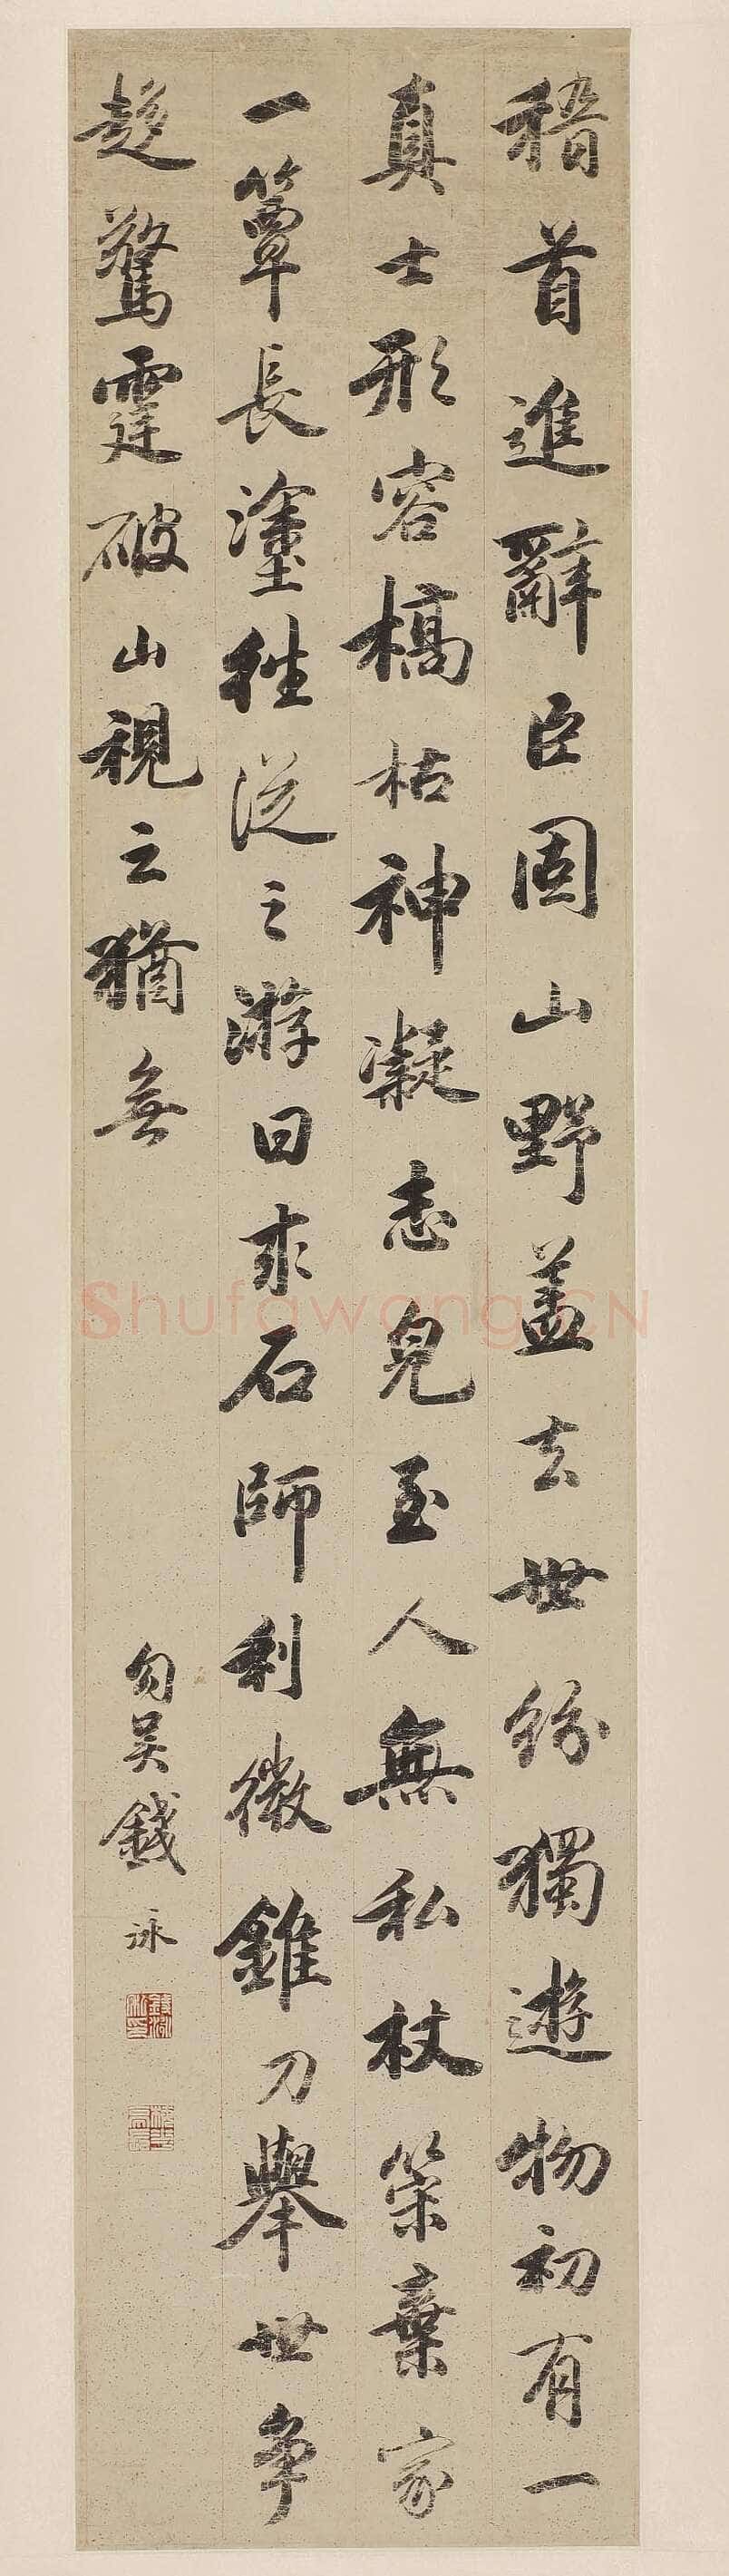 稽首進辭臣固山野蓋去世紛獨遊物初有一
真士形容槁枯神凝志皃至人無私杖策棄家
一簞長塗往從之游曰求石師利徵錐刀舉世爭
趍驚霆破山視之猶無
勾吳錢泳
Shufawang.CN